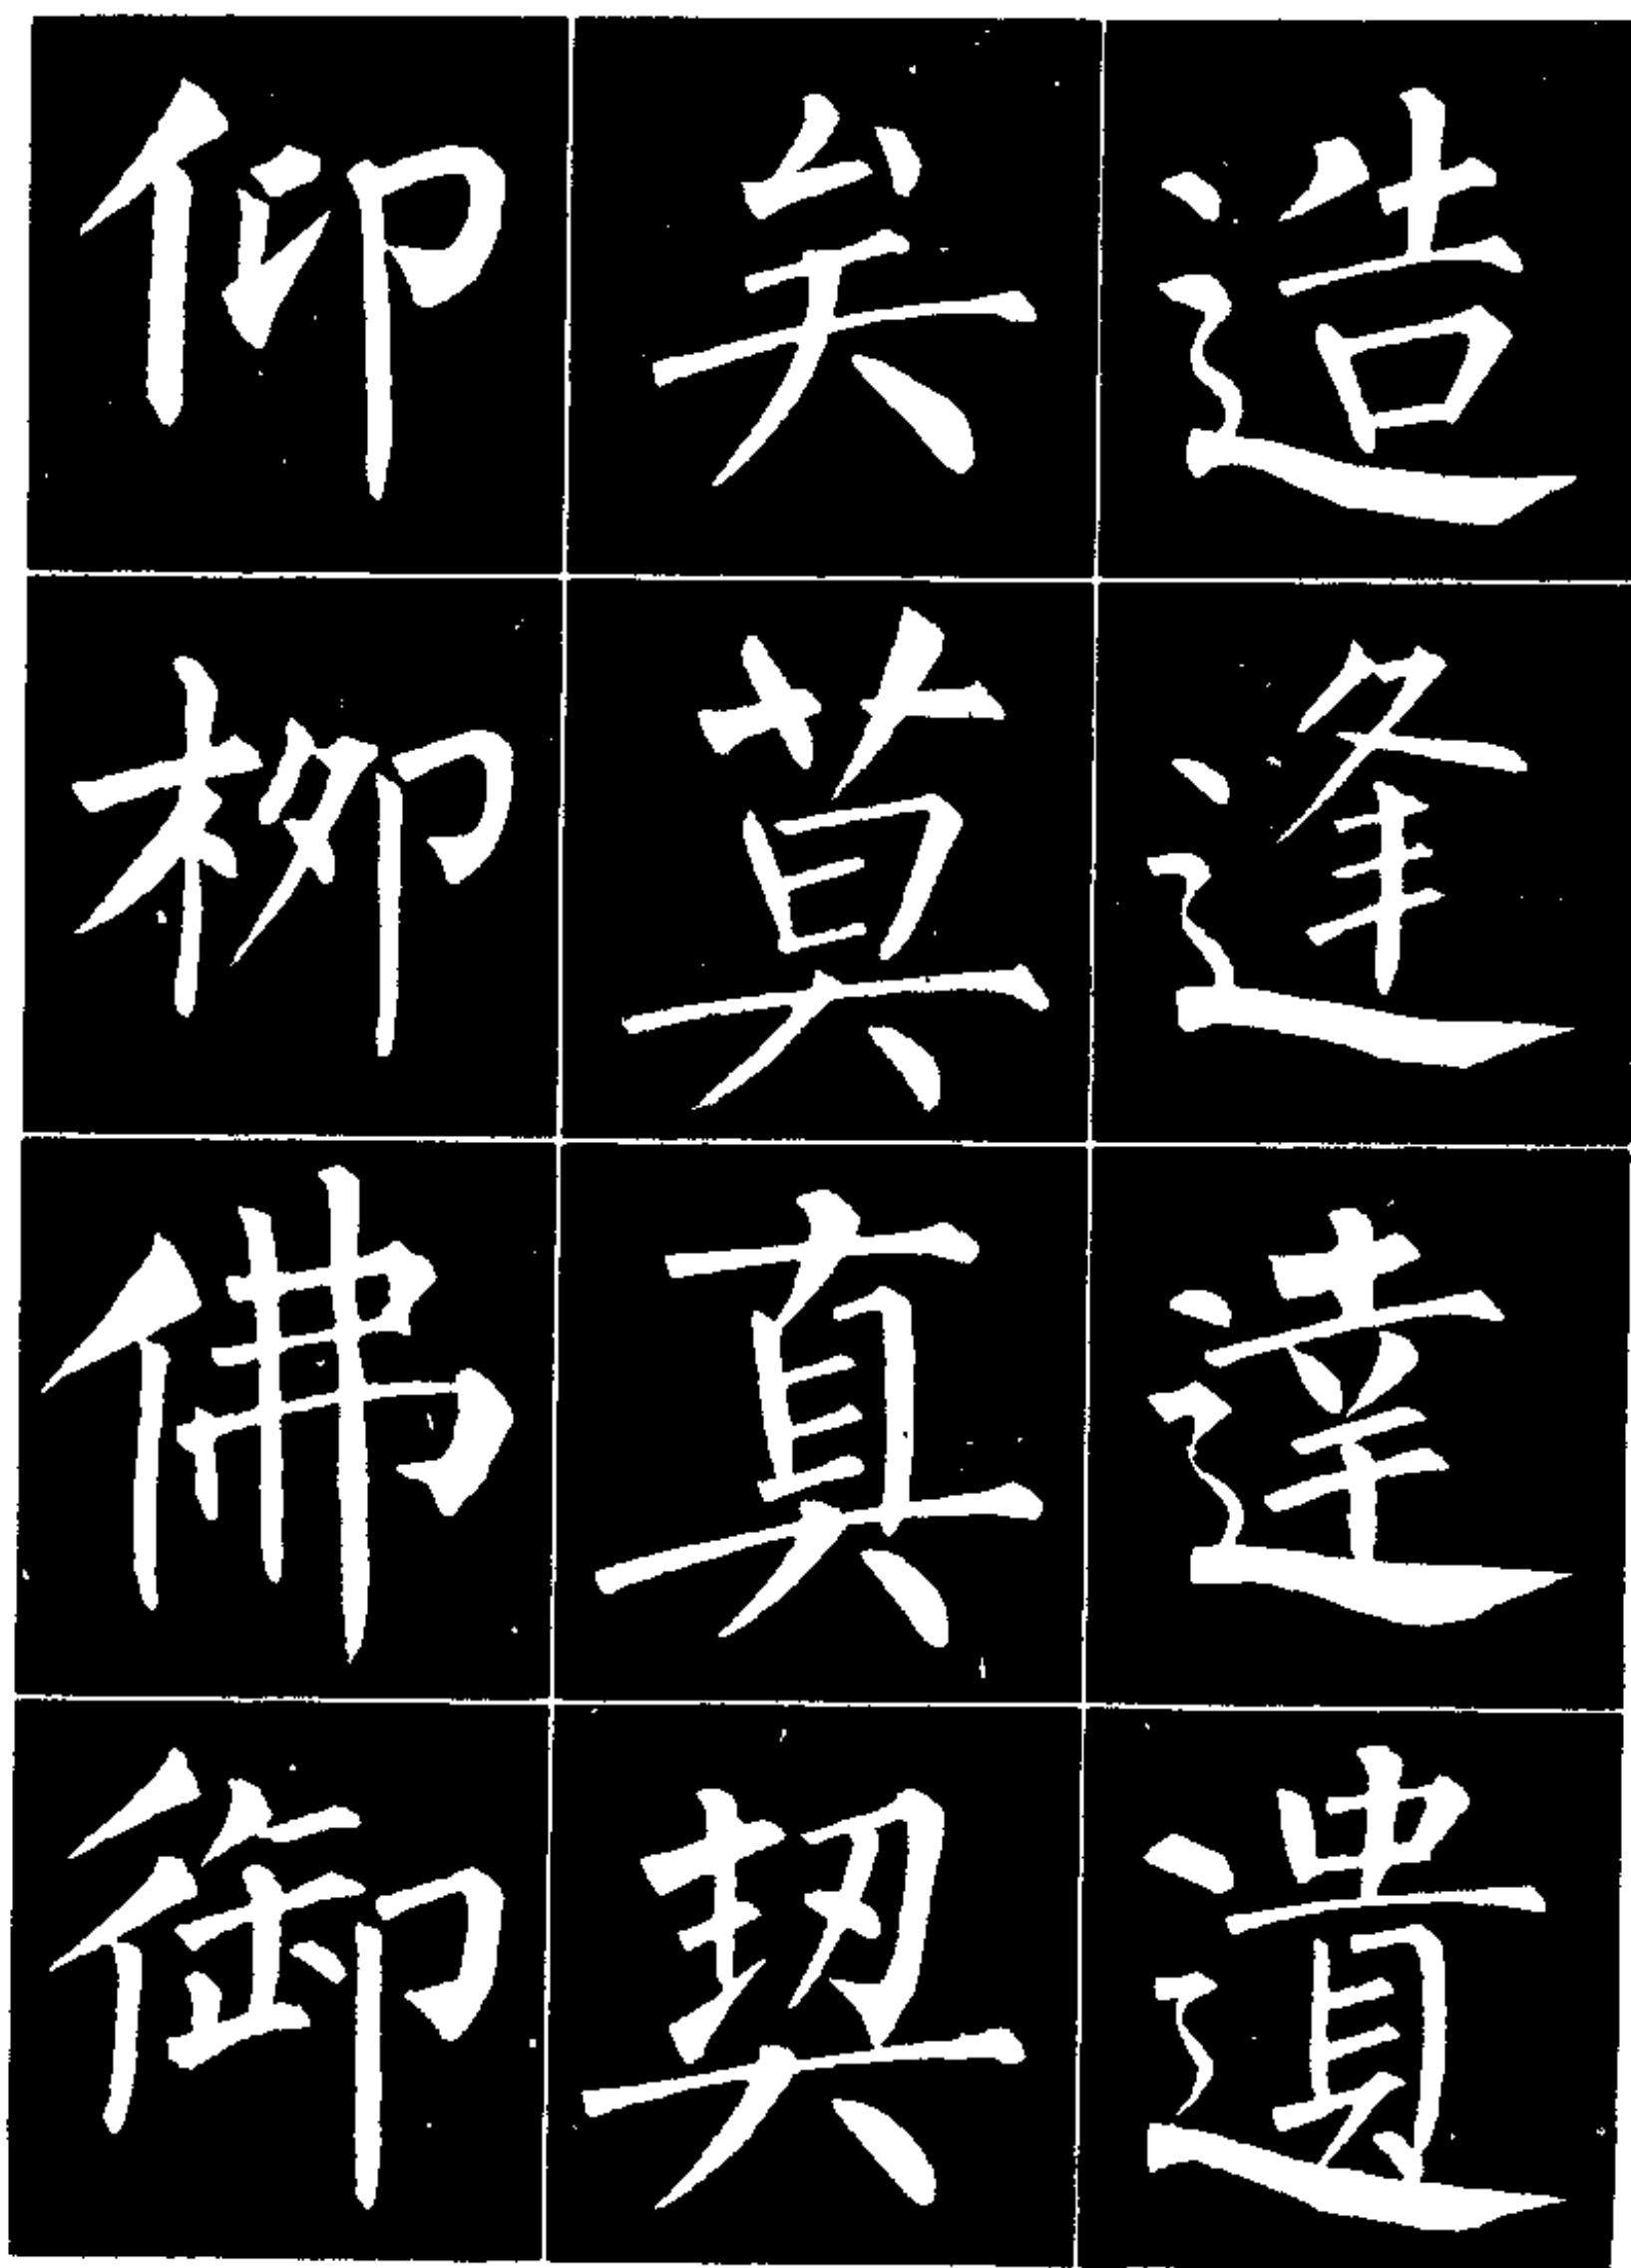 造逢達遺
矣莫真契
仰柳佛御